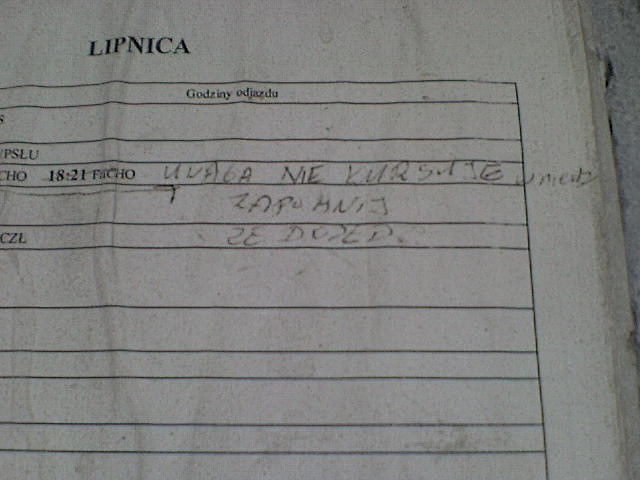 LIPNICA
Godziny odjazdu
S
/PSŁU
CHO 18:21 FllCHO UWAGA NIE KURSUJE
ZAPOMNIJ
CZŁ ŻE DOJED